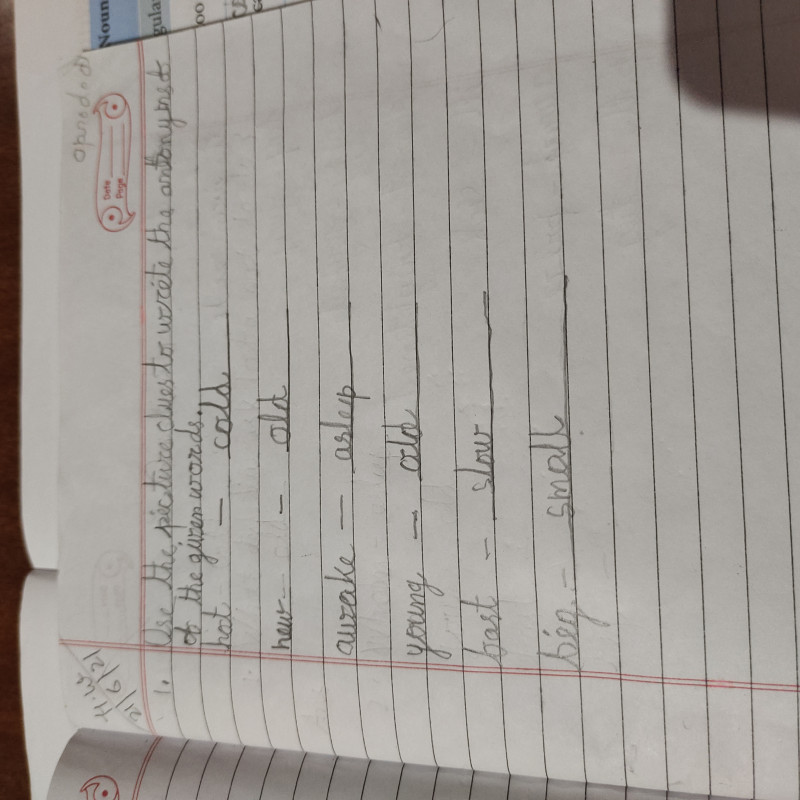 H.W
21/6/21
Date
Page
1. Use the picture clues to write the antonyms
of the given words.
hot - cold
new - old
awake - asleep
young - old
fast - slow
big - small
Noun